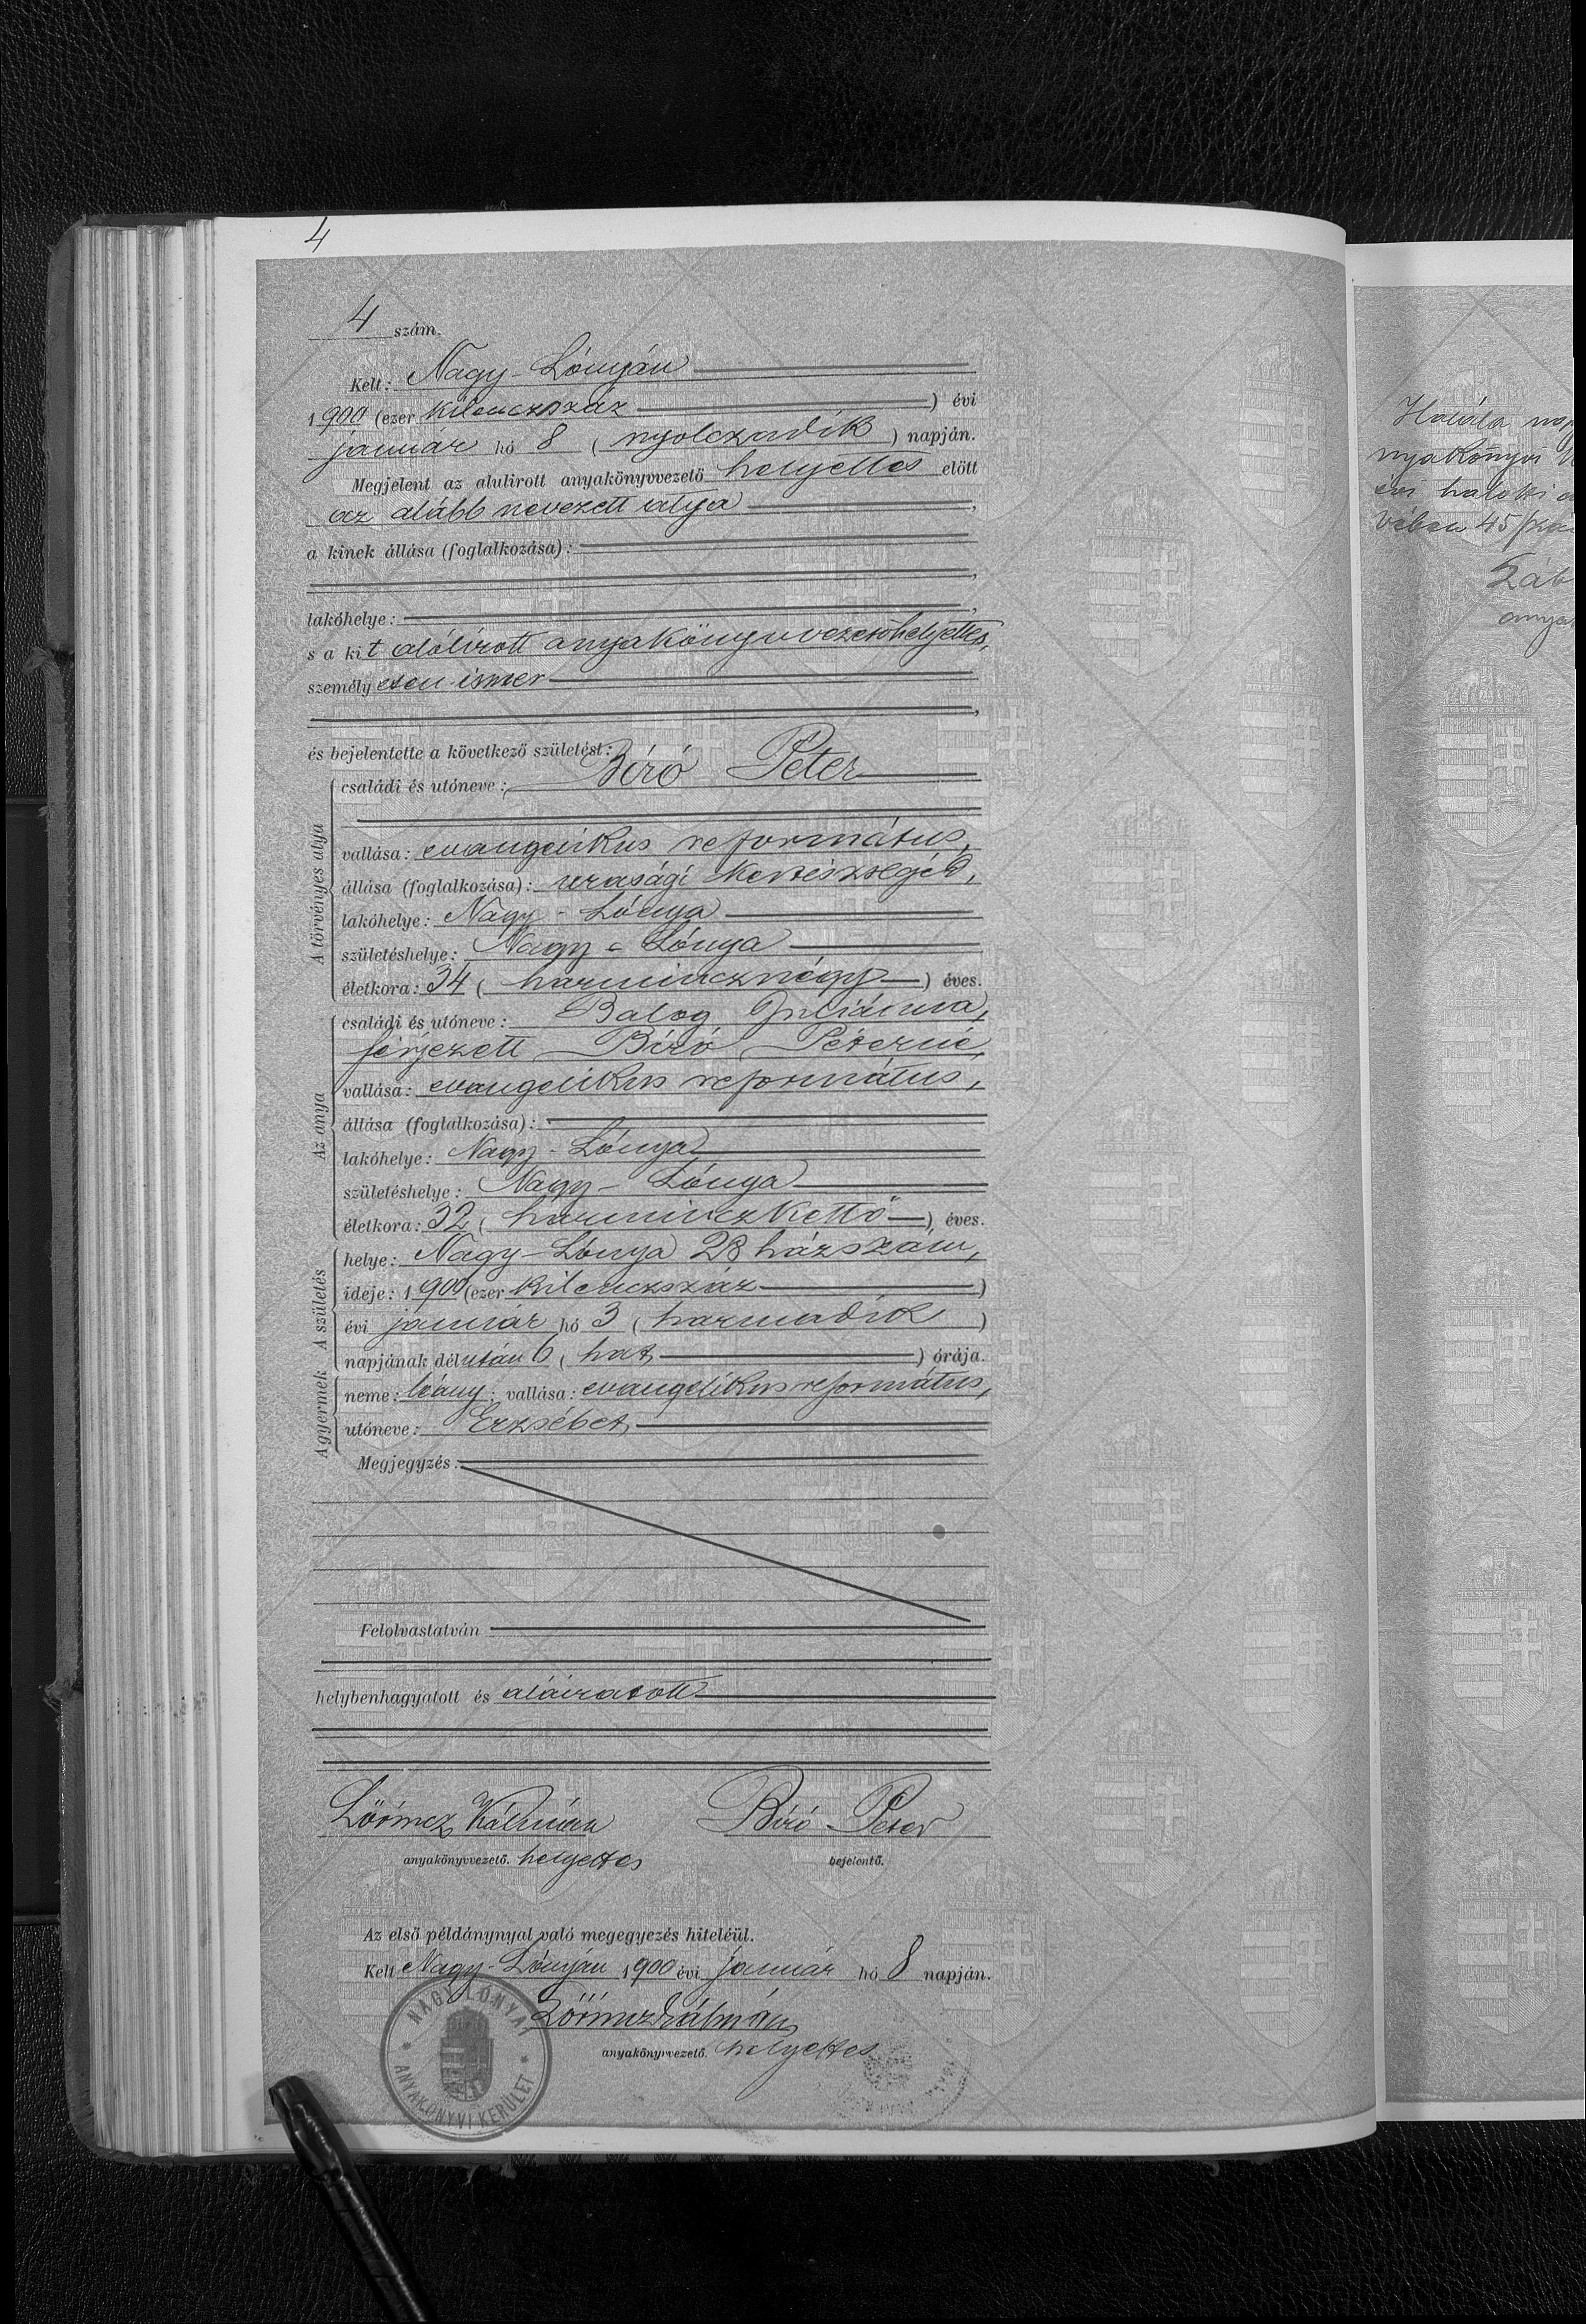 4
4 szám.
Kelt: Nagy-Lónyán
1900 (ezer kilenczszáz) évi
január hó 8 (nyolczadik) napján.
Megjelent az alulirott anyakönyvvezető helyettes előtt
az alább nevezett atya,
a kinek állása (foglalkozása):
lakóhelye:
s a kit alólírott anyakönyvvezetőhelyettes,
személyesen ismer
és bejelentette a következő születést:
A törvényes atya
családi és utóneve: Bíró Péter
vallása: evangelikus református,
állása (foglalkozása): urasági kertészsegéd,
lakóhelye: Nagy-Lónya
születéshelye: Nagy-Lónya
életkora: 34 (harmincznégy) éves.
Az anya
családi és utóneve: Balog Juliánna,
férjezett Bíró Péterné,
vallása: evangelikus református,
állása (foglalkozása):
lakóhelye: Nagy-Lónya
születéshelye: Nagy-Lónya
életkora: 32 (harminczkettő) éves.
A születés
helye: Nagy-Lónya 28 házszám,
ideje: 1900 (ezer kilenczszáz)
évi január hó 3 (harmadik)
napjának délután 6 (hat) órája.
A gyermek
neme: leány; vallása: evangelikus református,
utóneve: Erzsébet,
Megjegyzés:
Felolvastatván
helybenhagyatott és aláiratott
Lőrincz Kálmán Bíró Péter
anyakönyvvezető. helyettes bejelentő.
Az első példánynyal való megegyezés hiteléül.
Kelt Nagy-Lónyán 1900 évi január hó 8 napján.
Lőrincz Kálmán
anyakönyvvezető. helyettes
NAGY LÓNYAI
ANYAKÖNYVI KERÜLET
Halála
nyakönyvi
évi halotti
45
anya